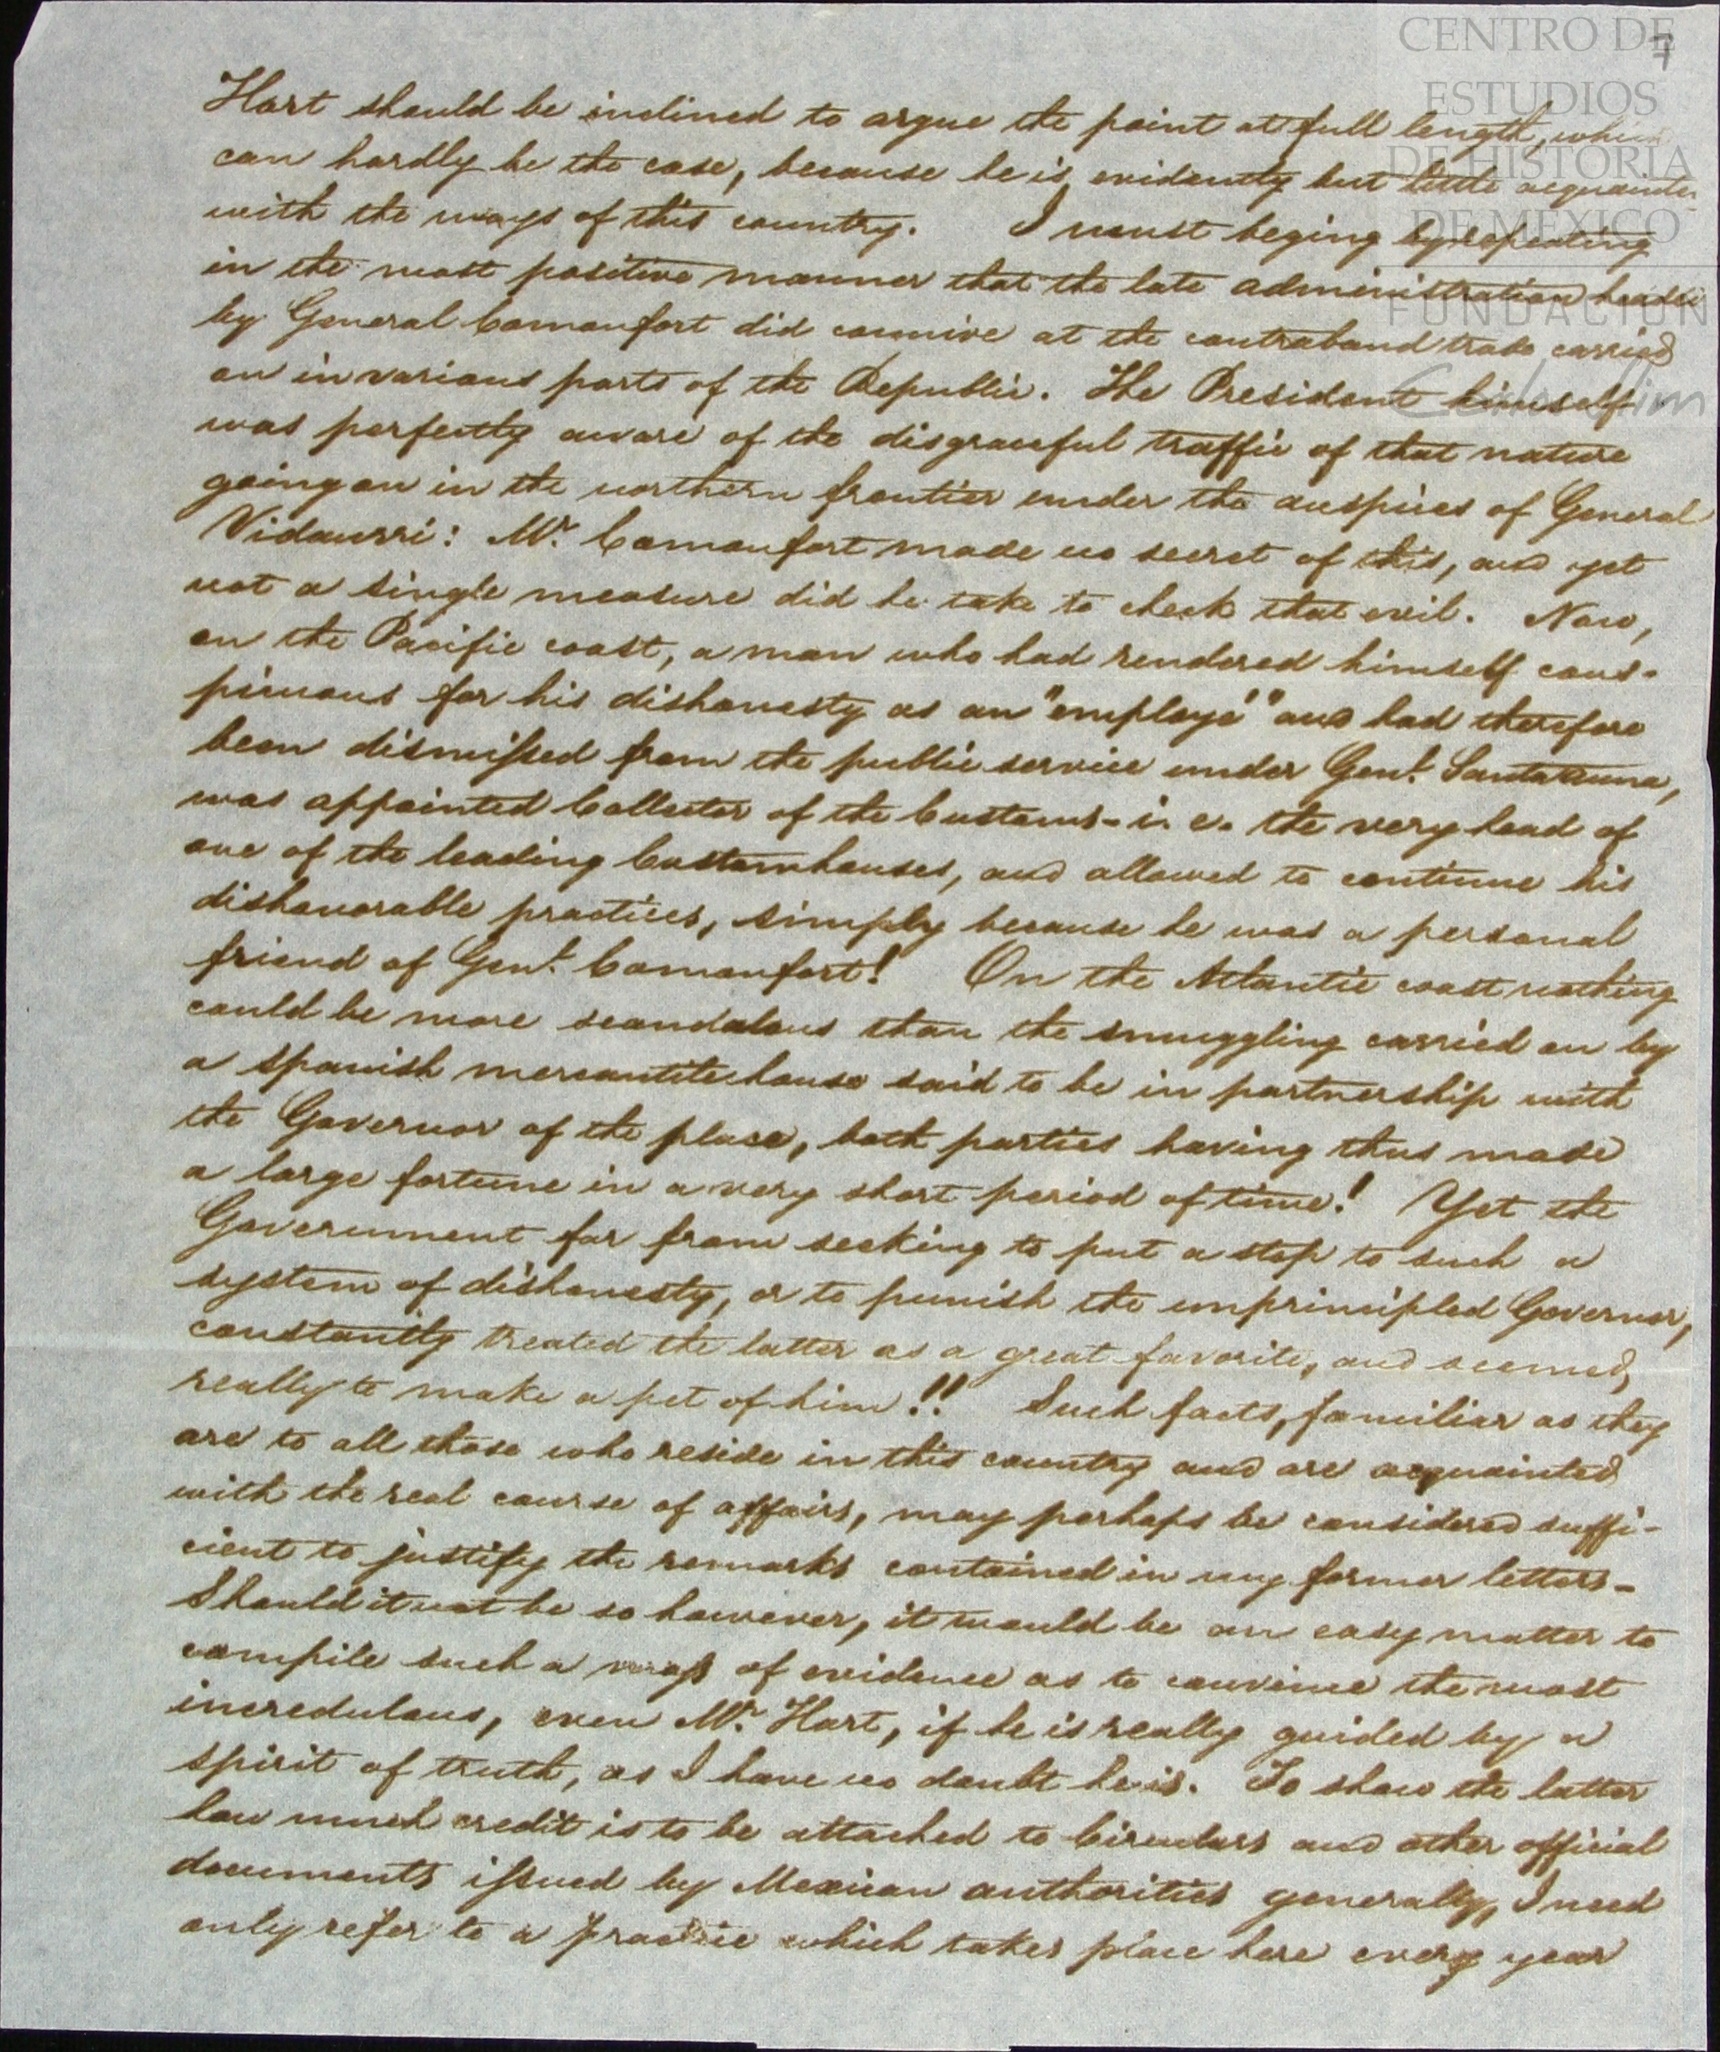 7
CENTRO DE
ESTUDIOS
DE HISTORIA
DE MEXICO
FUNDACIÓN
Carlos Slim
Hart should be inclined to argue the point at full length, which
can hardly be the case, because he is evidently but little acquainted
with the ways of this country. I must beging by repeating
in the most positive manner that the late administration headed
by General Comonfort did connive at the contraband trade carried
on in various parts of the Republic. The President himself
was perfectly aware of the disgraceful traffic of that nature
going on in the northern frontier under the auspices of General
Vidaurri: Mr. Comonfort made no secret of this, and yet
not a single measure did he take to check that evil. Now,
on the Pacific coast, a man who had rendered himself cons-
picuous for his dishonesty as an "employé" and had therefore
been dismissed from the public service under Genl. Santa Anna,
was appointed Collector of the Customs - i. e. the very head of
one of the leading Customhouses, and allowed to continue his
dishonorable practices, simply because he was a personal
friend of Genl. Comonfort! On the Atlantic coast nothing
could be more scandalous than the smuggling carried on by
a spanish mercantile house said to be in partnership with
the Governor of the place, both parties having thus made
a large fortune in a very short period of time! Yet the
Government far from seeking to put a stop to such a
system of dishonesty, or to punish the unprincipled Governor,
constantly treated the latter as a great favorite, and seemed
really to make a pet of him!! Such facts, familiar as they
are to all those who reside in this country and are acquainted
with the real course of affairs, may perhaps be considered suffi-
cient to justify the remarks contained in my former letters -
Should it not be so however, it would be an easy matter to
compile such a mass of evidence as to convince the most
incredulous, even Mr. Hart, if he is really guided by a
spirit of truth, as I have no doubt he is. To show the latter
how much credit is to be attached to Circulars and other official
documents issued by Mexican authorities generally, I need
only refer to a practice which takes place here every year